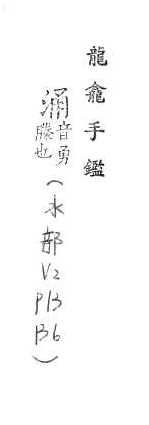 龍龕手鑑
湧音勇
滕也
(水部
V2
P13
B6)